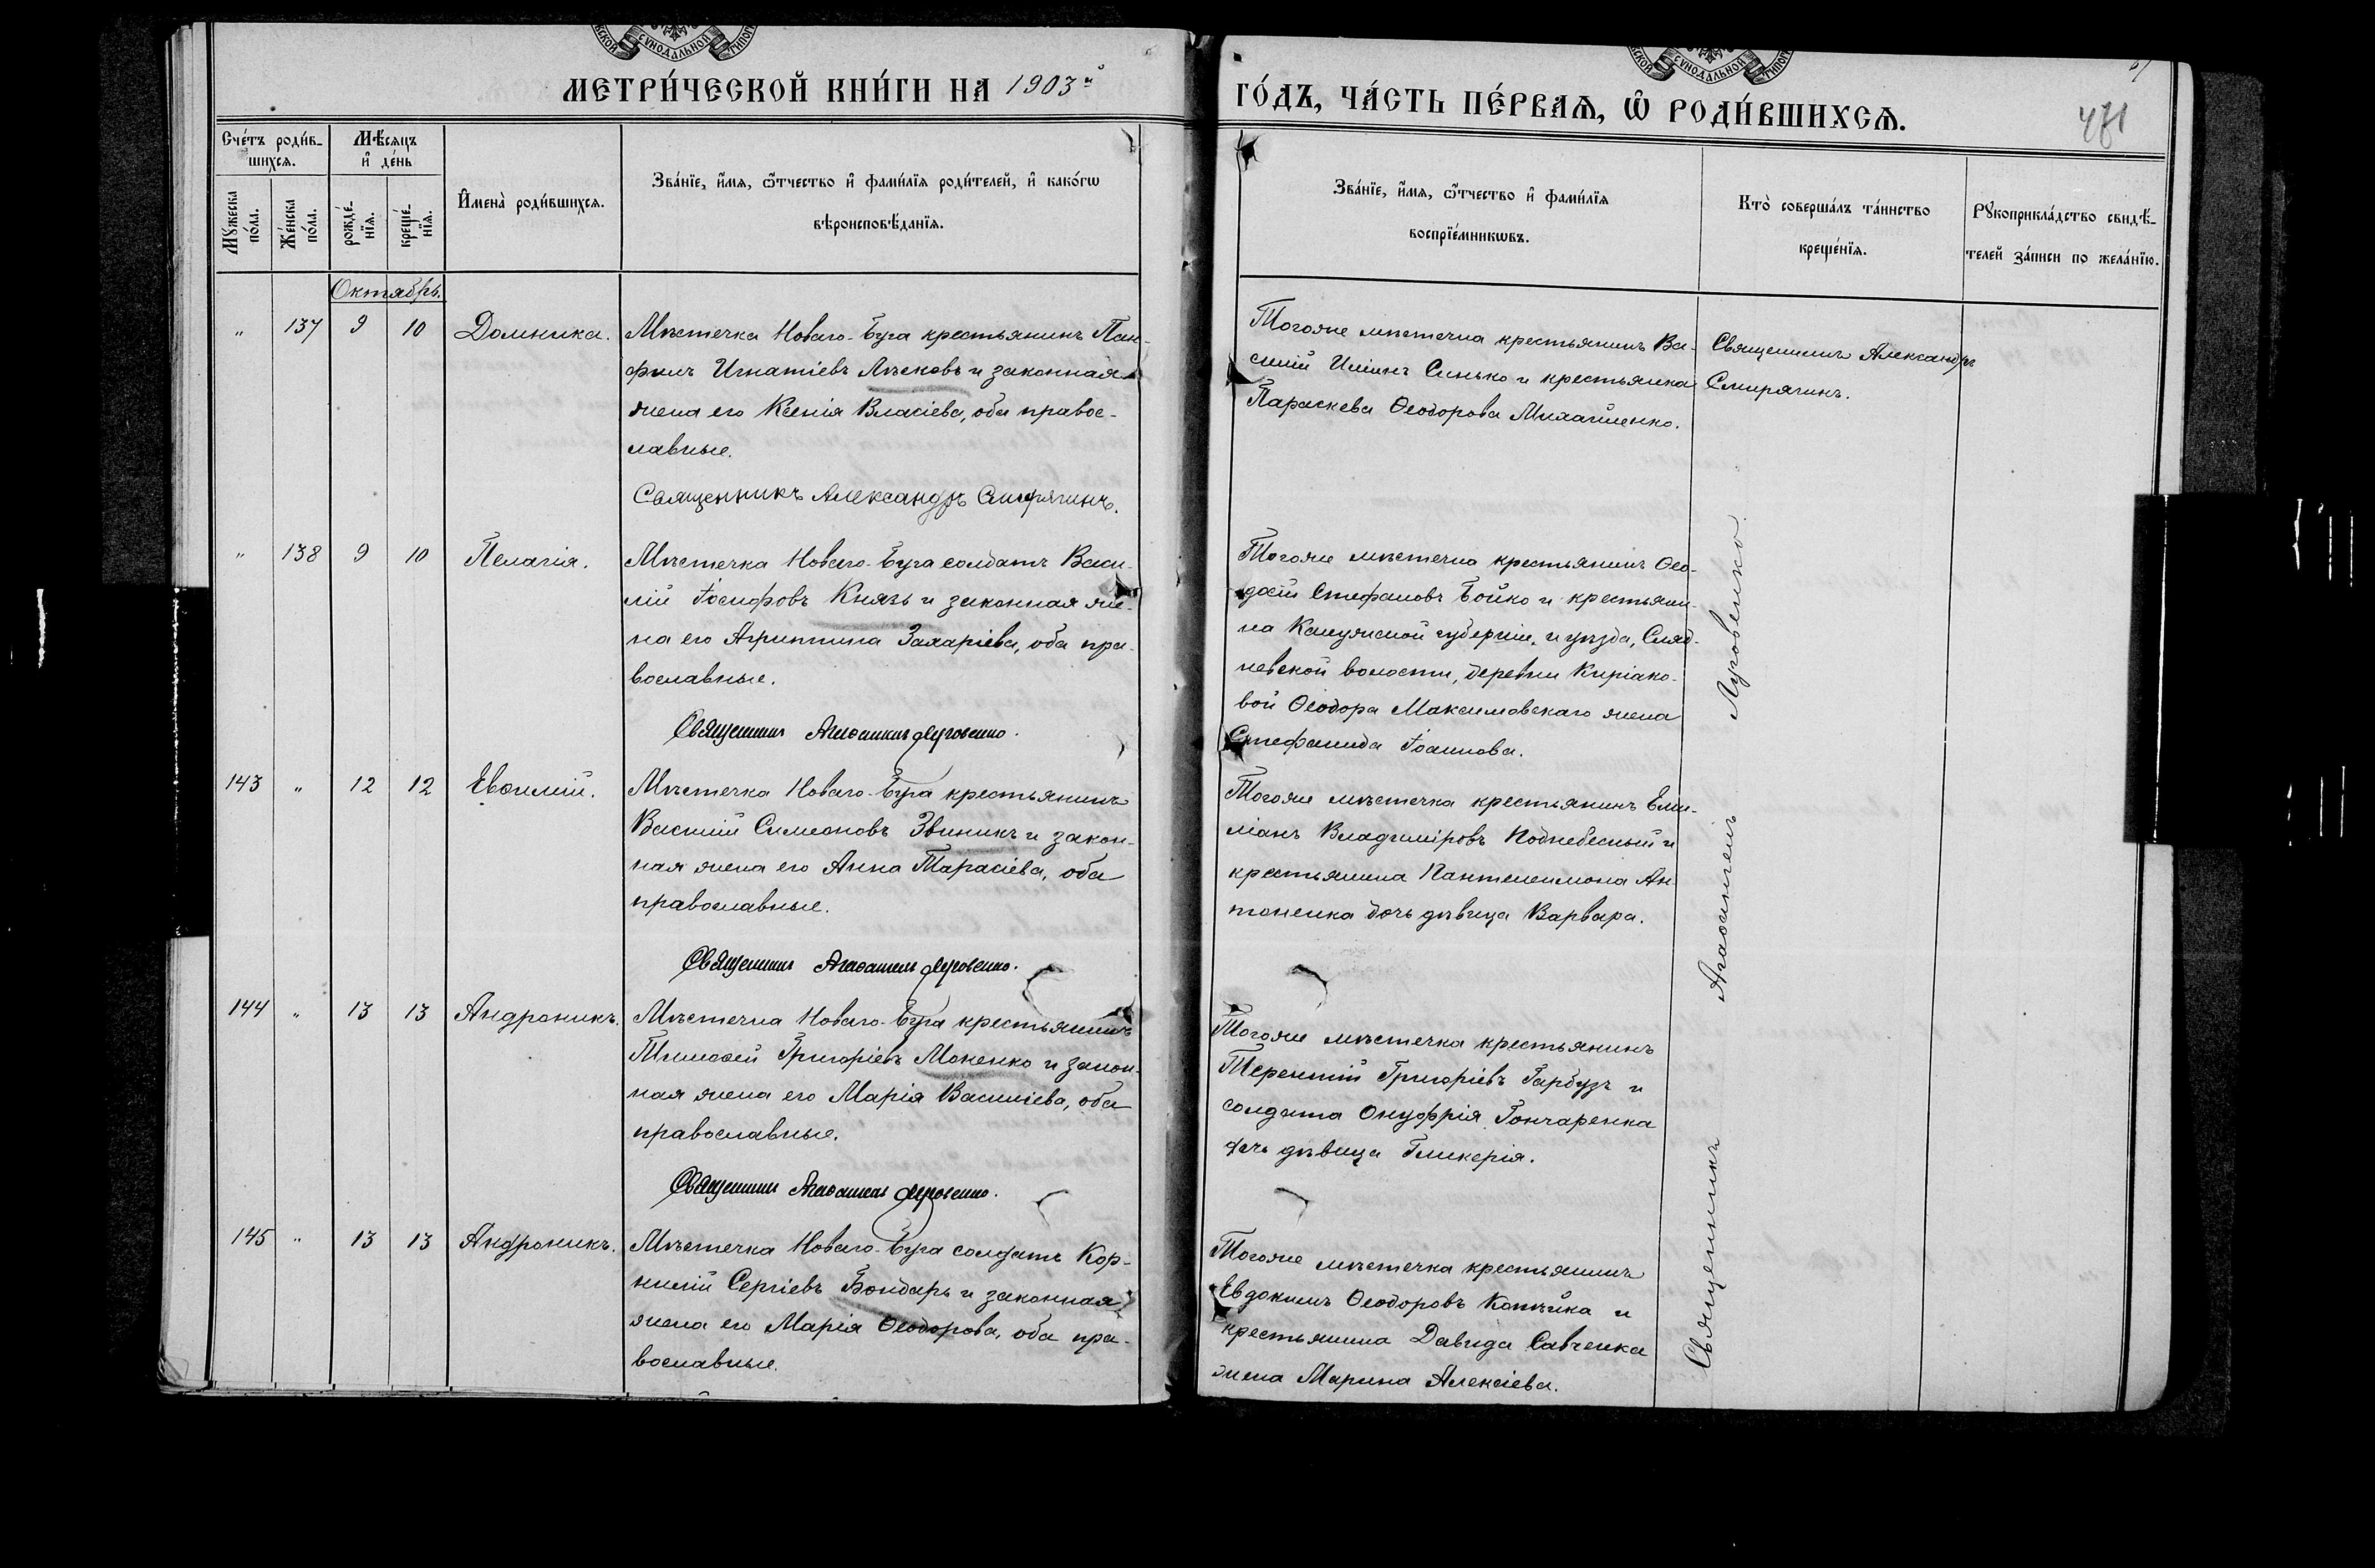 СѴНОДАЛЬНОЙ
СѴНОДАЛЬНОЙ
МЕТРИ́ЧЕСКОЙ КНИ́ГИ НА 1903й
ГО́ДЪ, ЧА́СТЬ ПЕ́РВАѦ, Ѡ РОДИ́ВШИХСѦ.
Сче́тъ роди́в-
шихсѧ.
Мѣ́сяцъ
и҆ де́нь
Мꙋ́жеска
по́ла.
Же́нска
по́ла.
рожде́-
нїѧ.
креще́-
нїѧ.
И҆мена̀ роди́вшихсѧ.
Зва́нїе, и҆́мѧ, ѻ҆́тчество и҆ фами́лїѧ роди́телей, и҆ како́гѡ
вѣроисповѣ́данїѧ.
Зва́нїе, и҆́мѧ, ѻ҆́тчество и҆ фами́лїѧ
воспрїе́мникѡвъ.
Кто̀ соверша́лъ та́инство
креще́нїѧ.
Рꙋкоприкла́дство свидѣ́-
телей за́писи по жела́нїю.
Октябрь.
" 137 9 10 Домника.
Мѣстечка Новаго-Буга крестьянинъ Пан-
филъ Игнатіевъ Лѣсковъ и законная
жена его Ксенія Власіева, оба правос-
лавные.
Священникъ Александръ Смирягинъ.
Тогоже мѣстечка крестьянинъ Ва-
силій Илiинъ Синько и крестьянка
Параскева Ѳеодорова Михайленко.
Священникъ Александръ
Смирягинъ.
" 138 9 10 Пелагія.
Мѣстечка Новаго-Буга солдатъ Васи-
лій Іосифовъ Князь и законная же-
на его Агриппина Захаріева, оба пра-
вославные.
Священникъ Агаѳангелъ Луговенко.
Тогоже мѣстечка крестьянинъ Ѳео-
досій Стефановъ Бойко и крестьяни-
на Калужской губерніи и уѣзда,
невской волости, деревни Киріако-
вой Ѳеодора Максимовскаго жена
Стефанида Іоаннова.
143 " 12 12 Евѳимій.
Мѣстечка Новаго-Буга крестьянинъ
Василій Симеоновъ Звиникъ и закон-
ная жена его Анна Тарасіева, оба
православные.
Священникъ Агаѳангелъ Луговенко.
Тогоже мѣстечка крестьянинъ Еми-
ліанъ Владиміровъ Поднебесный и
крестьянина Пантелеимона Ан-
тоненка дочь дѣвица Варвара.
144 " 13 13 Андроникъ.
Мѣстечка Новаго-Буга крестьянинъ
Тимоѳей Григоріевъ Мокенко и закон-
ная жена его Марія Василіева, оба
православные.
Священникъ Агаѳангелъ Луговенко.
Тогоже мѣстечка крестьянинъ
Терентій Григоріевъ Гарбузъ и
солдата Онуфрія Гончаренка
дочь дѣвица Гликерія.
145 " 13 13 Андроникъ.
Мѣстечка Новаго-Буга солдатъ Кор-
нилій Сергіевъ Бондарь и законная
жена его Марія Ѳеодорова, оба пра-
вославные.
Тогоже мѣстечка крестьянинъ
Евдокимъ Ѳеодоровъ и
крестьянина Давида Савченка
жена Марина Алексіева.
Священникъ Агаѳангелъ Луговенко.